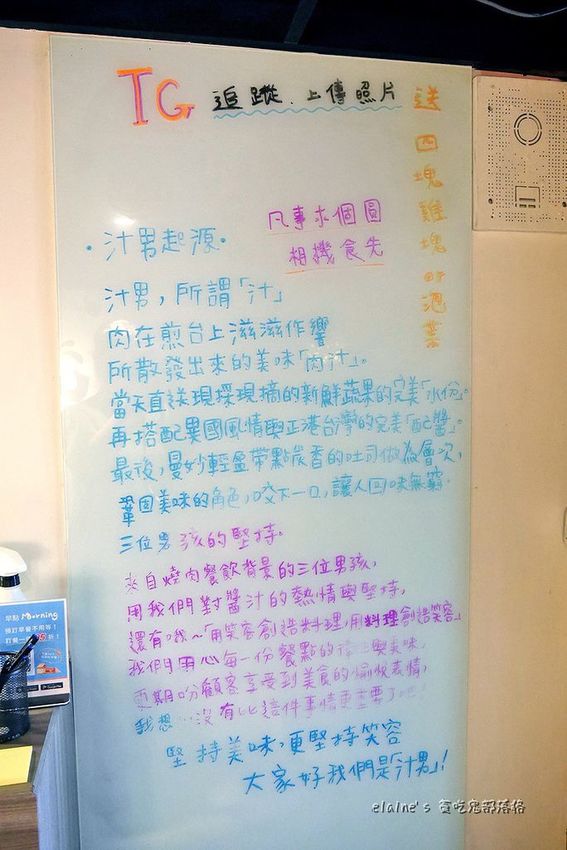 IG 追蹤、上傳照片
送四塊雞塊or泡菜
凡事求個圓
相機食先
·汁男起源·
汁男，所謂「汁」
肉在煎台上滋滋作響
所散發出來的美味「肉汁」。
當天直送現採現摘的新鮮蔬果的完美「水份」。
再搭配異國風情與正港台灣的完美「配醬」。
最後，曼妙輕盈帶點炭香的吐司做為層次，
鞏固美味的角色，咬下一口，讓人回味無窮，
三位男孩的堅持。
來自燒肉餐飲背景的三位男孩，
用我們對醬汁的熱情與堅持，
還有，哦~「用笑容創造料理，用料理創造笑容」
我們用心每一份餐點的 與美味，
更期盼顧客享受到美食的愉悅表情，
我想…沒有比這件事情更重要了吧
堅持美味，更堅持笑容
大家好我們是「汁男」！
早點 Morning
預訂早餐不用等！
訂餐一 5折！
elaine's 貪吃鬼部落格